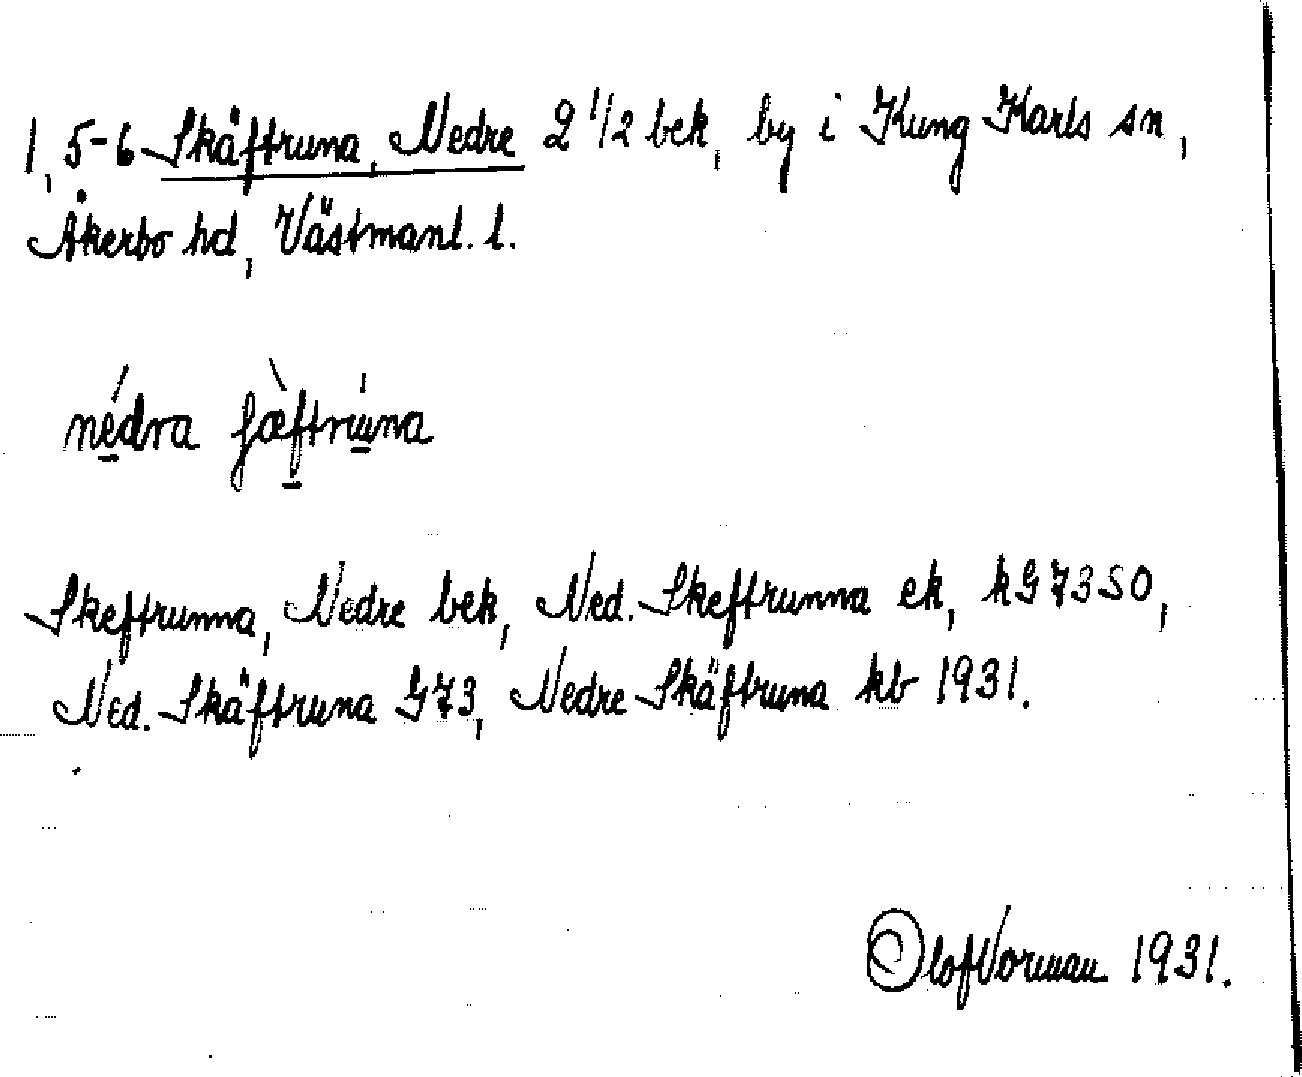 1, 5-6 Skäftruna, Nedre 2 1/2 bek, by i Kung Karls sn,
Åkerbo hd, Västmanl. l.
nédra ʃæ̀ftrúna
Skeftrunna, Nedre bek, Ned. Skeftrunna ek, kG 73 SO,
Ned. Skäftruna G73, Nedre Skäftruna kb 1931.
Olof Vorman 1931.